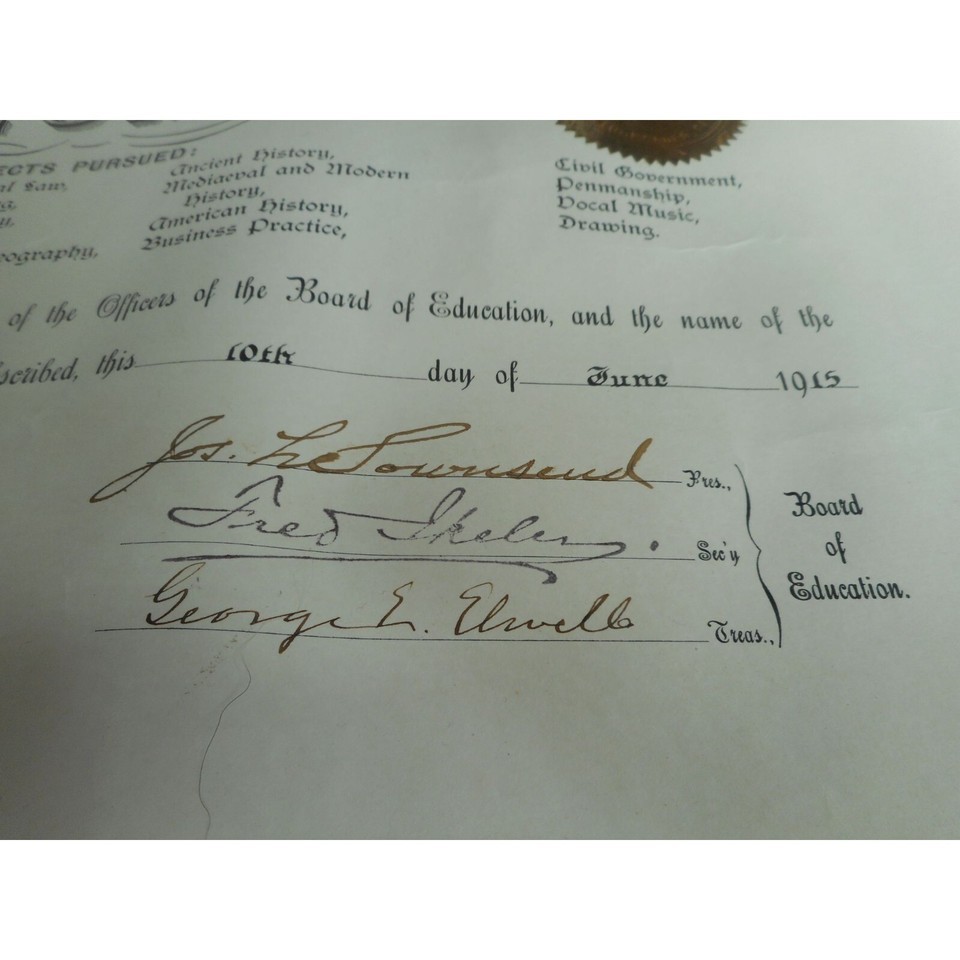 ECTS PURSUED:
Ancient History,
Mediaeval and Modern
History,
American History,
Business Practice,
al Law,
eography,
Civil Government,
Penmanship,
Vocal Music,
Drawing.
of the Officers of the Board of Education, and the name of the
scribed, this 10th day of June 1915
Jos. L. Townsend Pres.,
Fred Ikeler. Sec'y
George E. Elwell Treas.,
Board
of
Education.